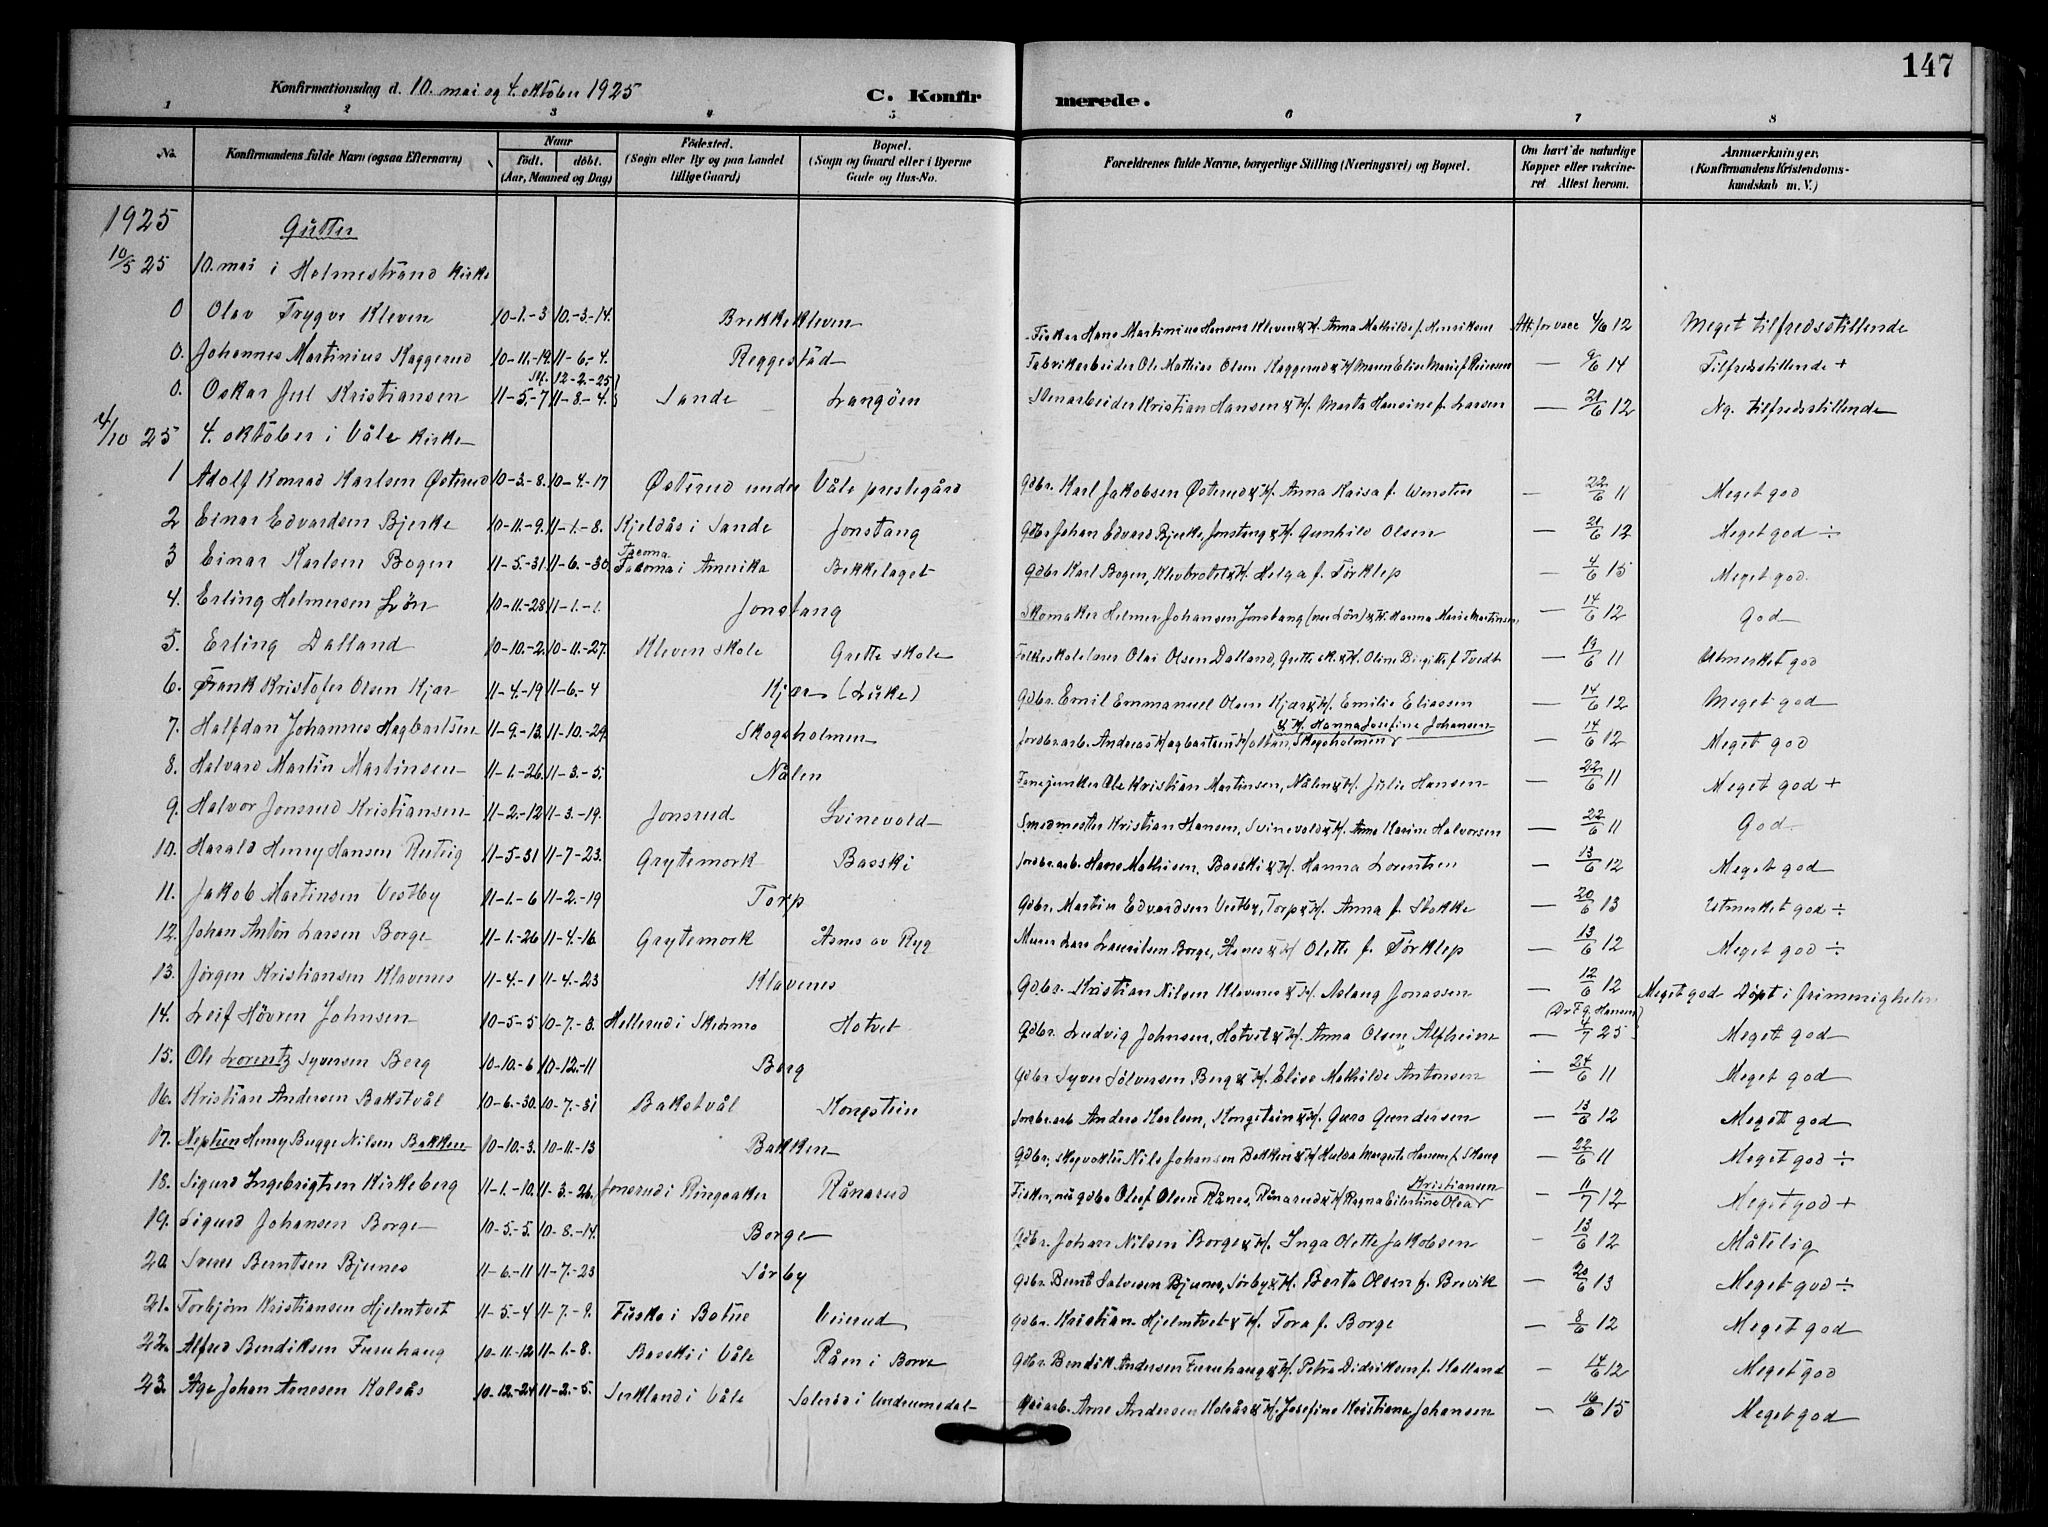 147
Konfirmationsdag d. 10. mai og 4. oktober 1925
C. Konfirmerede.
1 2 3 4 5 6 7 8
No. Konfirmandens fulde Navn (ogsaa Efternavn) Naar født. døbt. (Aar, Maaned og Dag) Fødested. (Sogn eller By og paa Landet tillige Gaard) Bopæl. (Sogn og Gaard eller i Byerne Gade og Hus-No. Forældrenes fulde Navne, borgerlige Stilling (Næringsvei) og Bopæl. Om havt de naturlige Kopper eller vakcineret Attest herom. Anmærkninger. (Konfirmandens Kristendomskundskab m. V.)
1925 Gutter
10/5 25 10. mai i Holmestrand kirke
0 Olav Trygve Kleven 10-1-3 10-3-14. Brekkekleven Fisker Hans Martinius Hansen Kleven & H. Anna Mathilde f. Henriksen Att. for vacc 4/6 12 Meget tilfredsstillende
0. Johannes Martinius Kaggerud 10-11-19. 11-6-4. Reggestad Fabrikarbeider Ole Mathias Olsen Kaggerud & H. Maren Elise Marie f. Reiersen — 9/6 14 Tilfredsstillende +
0. Oskar Jul Kristiansen 11-5-7 12-2-25 11-8-4. Sande Langøen Stenarbeider Kristian Hansen & H. Marta Hansine f. Larsen — 21/6 12 Ng. tilfredsstillende
4/10 25 4. oktober i Våle kirke
1 Adolf Konrad Karlsen Østerud 10-3-8. 10-4-17 Østerud under Våle prestegård Gdbr. Karl Jakobsen Østerud & H. Anna Kaisa f. Wensten — 22/6 11 Meget god
2 Einar Edvardsen Bjerke 10-11-9. 11-1-8. Kjeldås i Sande Jonstang Gdbr Johan Edvard Bjerke, Jonstang & H. Gunhild Olsen — 21/6 12 Meget god ÷
3 Einar Karlsen Bogen 11-5-31. 11-6-30 Tacoma i Amerika Bekkelaget Gdbr Karl Bogen, Klevbrotet & H. Helga f. Tørklep — 4/6 15 Meget god.
4. Erling Helmersen Løn 10-11-28 11-1-1. Jonstang Skomaker Helmer Johansen Jonstang (nu Løn) & H. Hanna Marie Martinsen — 14/6 12 God
5. Erling Dalland 10-10-2. 10-11-27. Kleven skole Grette skole Folkeskolelærer Olai Olsen Dalland, Grette sk. & H. Oline Birgitte f. Tvedt — 19/6 11 Utmerket god
6. Frank Kristofer Olsen Kjær 11-4-19 11-6-4 Kjær (Luke) Gdbr. Emil Emmanuel Olsen Kjær & H. Emilie Eliassen — 14/6 12 Meget god
7. Halfdan Johannes Hagbartsen 11-9-13. 11-10-29. Skogsholmen Jordbr.arb. Andreas Hagbartsen Holtan, Skogsholmen & H. Hanna Josefine Johansen — 14/6 12 Meget god
8. Halvard Martin Martinsen 11-1-26. 11-3-5. Nålen Fanejunker Ole Kristian Martinsen, Nålen & H. Julie Hansen — 22/6 11 Meget god +
9. Halvor Jonsrud Kristiansen 11-2-12 11-3-19. Jonsrud Svinevold Smedmester Kristian Hansen, Svinevold & H. Anna Karine Halvorsen — 22/6 11 God.
10. Harald Henry Hansen Rutig 11-5-31 11-7-23. Grytemork Basski Jordbr.arb. Hans Mathisen, Basski & H. Hanna Lorentsen — 13/6 12 Meget god
11. Jakob Martinsen Vestby 11-1-6 11-2-19 Torp Gdbr. Martin Edvardsen Vestby, Torp & H. Anna f. Stokke — 20/6 13 Utmerket god ÷
12. Johan Anton Larsen Borge 11-1-26 11-4-16. Grytemork Åsnes av Ryg Murer Lars Lauritsen Borge, Åsnes & H. Olette f. Tørklep — 13/6 12 Meget god ÷
13. Jørgen Kristiansen Klavenes 11-4-1 11-4-23 Klavenes Gdbr. Kristian Nilsen Klavenes & H. Aslaug Jonassen — 12/6 12 Meget god Døpt i frimenigheten
14. Leif Høvren Johnsen 10-5-5 10-7-3. Hellerud i Skedsmo Hotvet Gdbr. Ludvig Johnsen, Hotvet & H. Anna Olsen, Alfheim (Dr F. G. Hansen) — 4/7 25 Meget god
15. Ole Lorentz Syversen Berg 10-10-6 10-12-11 Berg Gdbr Syver Sølversen Berg & H. Elise Mathilde Antonsen — 24/6 11 Meget god
16. Kristian Andersen Bakstvål 10-6-30. 10-7-31 Bakstvål Kongstein Jordbr.arb Anders Karlsen, Kongstein & H. Guro Gundersen — 13/6 12 Meget god
17. Neptun Henry Bugge Nilsen Bakken 10-10-3. 10-11-13 Bakken Gdbr., skogvokter Nils Johansen Bakken & H. Hulda Margrete Hansen f. Skaug — 22/6 11 Meget god ÷
18. Sigurd Ingebrigtsen Kirkeberg 11-1-10. 11-3-26. Jonsrud i Ringsaker Rånerud Fisker, nu gdbr Oluf Olsen Rånes, Rånerud & H. Ragna Eilertine Olea Kristiansen — 11/7 12 Meget god +
19. Sigurd Johansen Borge 10-5-5. 10-8-14. Borge Gdbr. Johan Nilsen Borge & H. Inga Olette Jakobsen — 13/6 12 Måtelig
20. Sverre Berntsen Bjunes 11-6-11 11-7-23 Sørby Gdbr. Bernt Salvesen Bjunes, Sørby & H. Berta Olsen f. Brevik — 20/6 13 Meget god ÷
21. Torbjørn Kristiansen Hjelmtvet 11-5-4 11-7-9. Fuske i Botne Veierud Gdbr. Kristian Hjelmtvet & H. Tora f. Borge — 8/6 12 Meget god
22. Alfred Bendiksen Furuhaug 10-11-12 11-1-8. Basski i Våle Råen i Borre Gdbr. Bendik Andersen Furuhaug & H. Petra Didriksen f. Holland — 14/6 12 Meget god
23. Åge Johan Arnesen Kolsås 10-12-24 11-2-5. Serkland i Våle Solerød i Undrumsdal Veiarb. Arne Andersen Kolsås & H. Josefine Kristiane Johansen — 16/6 15 Meget god